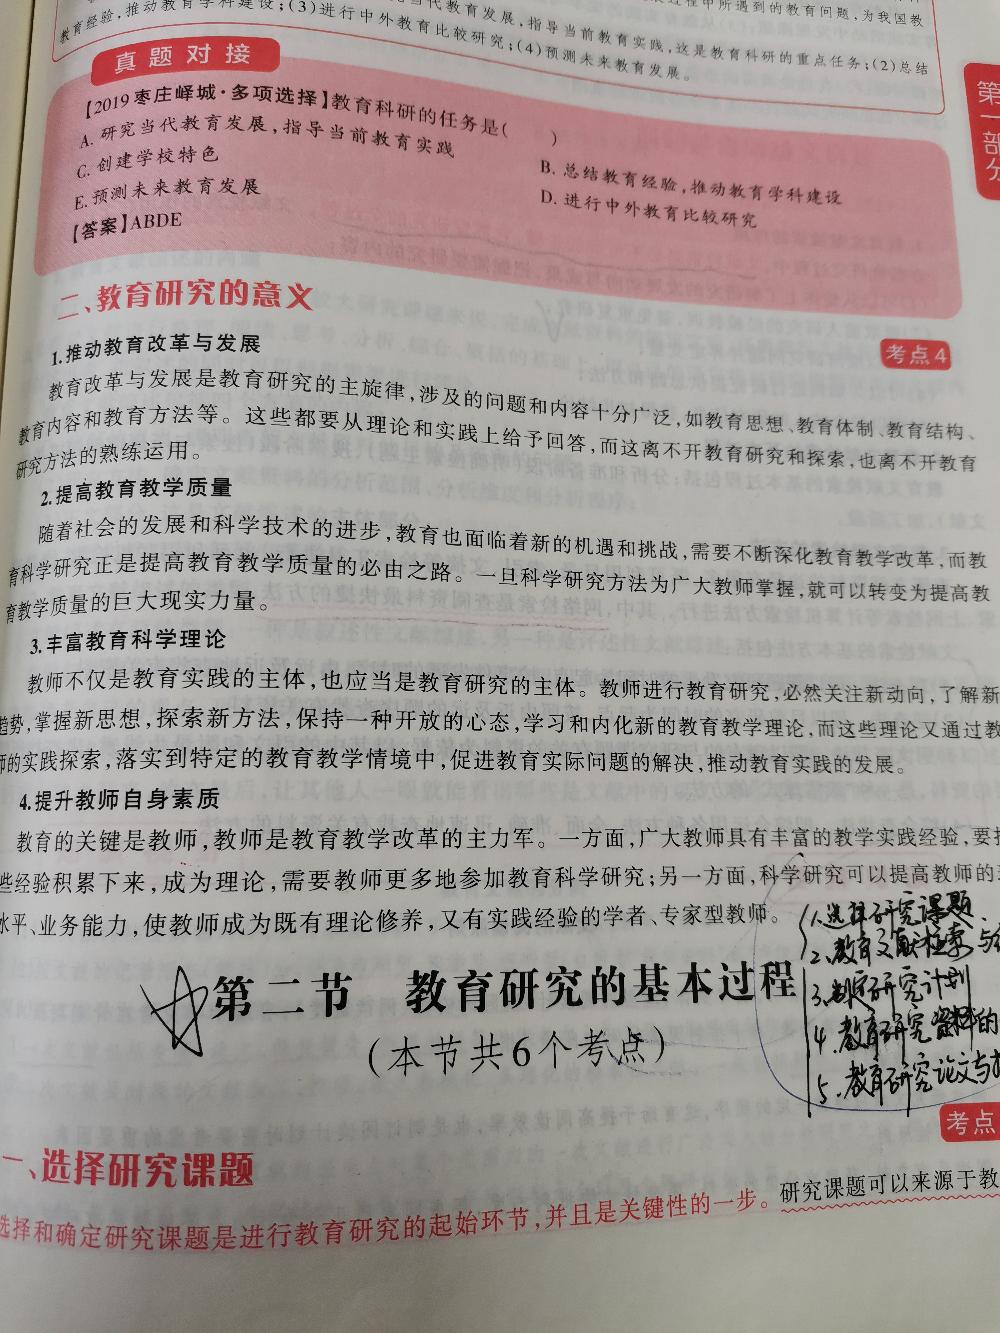 过程中所遇到的教育问题,为我国教
当代教育发展,指导当前教育实践,这是教育科研的重点任务;(2)总结
教育经验,推动教育学科建设;(3)进行中外教育比较研究;(4)预测未来教育发展。
真题对接
【2019枣庄峄城·多项选择】教育科研的任务是( )
A. 研究当代教育发展,指导当前教育实践
B. 总结教育经验,推动教育学科建设
C. 创建学校特色
D. 进行中外教育比较研究
E. 预测未来教育发展
【答案】ABDE
第一部分
二、教育研究的意义
考点4
1.推动教育改革与发展
教育改革与发展是教育研究的主旋律,涉及的问题和内容十分广泛,如教育思想、教育体制、教育结构、
教育内容和教育方法等。这些都要从理论和实践上给予回答,而这离不开教育研究和探索,也离不开教育
研究方法的熟练运用。
2.提高教育教学质量
随着社会的发展和科学技术的进步,教育也面临着新的机遇和挑战,需要不断深化教育教学改革,而教
育科学研究正是提高教育教学质量的必由之路。一旦科学研究方法为广大教师掌握,就可以转变为提高教
育教学质量的巨大现实力量。
3.丰富教育科学理论
教师不仅是教育实践的主体,也应当是教育研究的主体。教师进行教育研究,必然关注新动向,了解新
趋势,掌握新思想,探索新方法,保持一种开放的心态,学习和内化新的教育教学理论,而这些理论又通过教
师的实践探索,落实到特定的教育教学情境中,促进教育实际问题的解决,推动教育实践的发展。
4.提升教师自身素质
教育的关键是教师,教师是教育教学改革的主力军。一方面,广大教师具有丰富的教学实践经验,要把
些经验积累下来,成为理论,需要教师更多地参加教育科学研究;另一方面,科学研究可以提高教师的
水平、业务能力,使教师成为既有理论修养,又有实践经验的学者、专家型教师。
1.选择研究课题
2.教育文献检索与
3.制定研究计划
4.教育研究资料的
5.教育研究论文与
第二节 教育研究的基本过程
(本节共6个考点)
考点
一、选择研究课题
选择和确定研究课题是进行教育研究的起始环节,并且是关键性的一步。研究课题可以来源于教